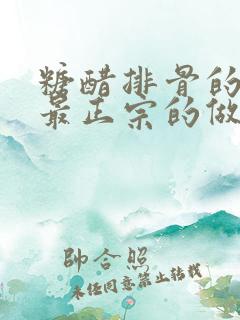 糖醋排骨的
最正宗的做
帥合照
未经同意禁止转载